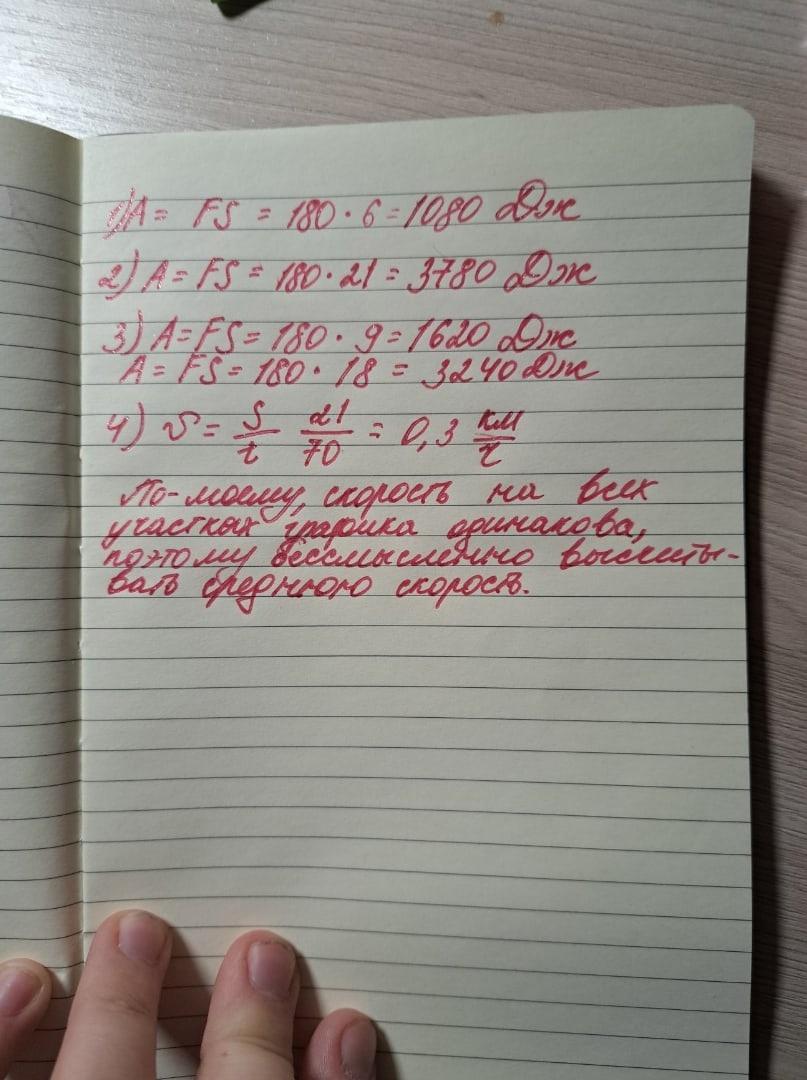 1) A = FS = 180 · 6 = 1080 Дж
2) A = FS = 180 · 21 = 3780 Дж
3) A = FS = 180 · 9 = 1620 Дж
A = FS = 180 · 18 = 3240 Дж
4) v = S/t 21/70 = 0,3 км/ч
По-моему, скорость на всех
участках графика одинакова,
поэтому бессмысленно высчиты-
вать среднюю скорость.